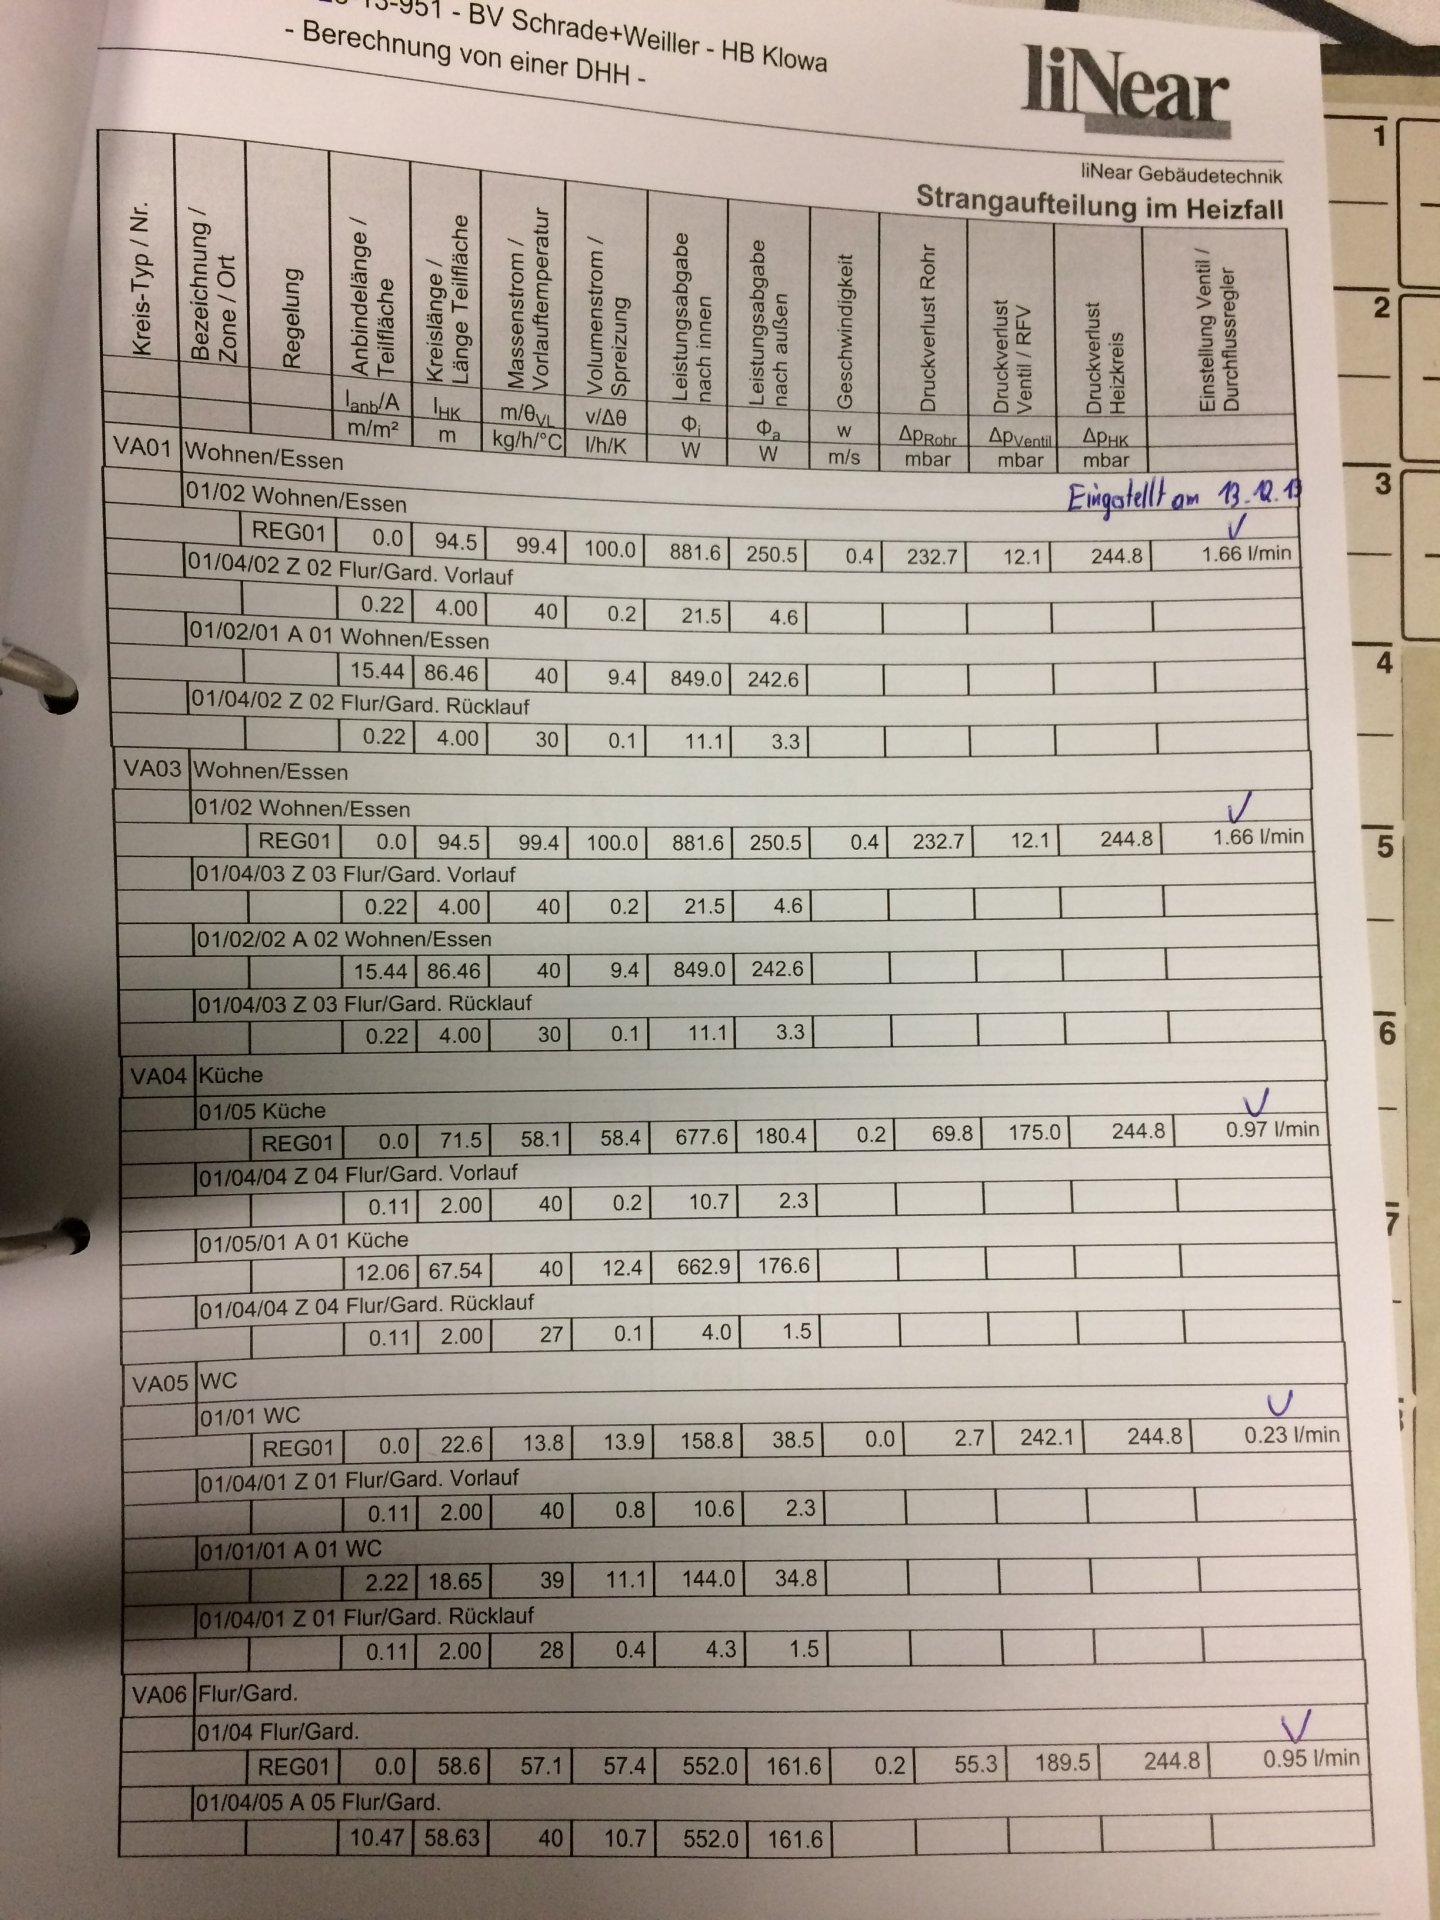 13-951 - BV Schrade+Weiller - HB Klowa
- Berechnung von einer DHH -
liNear
liNear Gebäudetechnik
Strangaufteilung im Heizfall
Kreis-Typ / Nr.
Bezeichnung /
Zone / Ort
Regelung
Anbindelänge /
Teilfläche
Kreislänge /
Länge Teilfläche
Massenstrom /
Vorlauftemperatur
Volumenstrom /
Spreizung
Leistungsabgabe
nach innen
Leistungsabgabe
nach außen
Geschwindigkeit
Druckverlust Rohr
Druckverlust
Ventil / RFV
Druckverlust
Heizkreis
Einstellung Ventil /
Durchflussregler
lanb/A lHK m/θVL v/Δθ Φi Φa w ΔpRohr ΔpVentil ΔpHK
m/m² m kg/h/°C l/h/K W W m/s mbar mbar mbar
VA01 Wohnen/Essen
01/02 Wohnen/Essen Eingestellt am 13.12.13
REG01 0.0 94.5 99.4 100.0 881.6 250.5 0.4 232.7 12.1 244.8 1.66 l/min
01/04/02 Z 02 Flur/Gard. Vorlauf
0.22 4.00 40 0.2 21.5 4.6
01/02/01 A 01 Wohnen/Essen
15.44 86.46 40 9.4 849.0 242.6
01/04/02 Z 02 Flur/Gard. Rücklauf
0.22 4.00 30 0.1 11.1 3.3
VA03 Wohnen/Essen
01/02 Wohnen/Essen
REG01 0.0 94.5 99.4 100.0 881.6 250.5 0.4 232.7 12.1 244.8 1.66 l/min
01/04/03 Z 03 Flur/Gard. Vorlauf
0.22 4.00 40 0.2 21.5 4.6
01/02/02 A 02 Wohnen/Essen
15.44 86.46 40 9.4 849.0 242.6
01/04/03 Z 03 Flur/Gard. Rücklauf
0.22 4.00 30 0.1 11.1 3.3
VA04 Küche
01/05 Küche
REG01 0.0 71.5 58.1 58.4 677.6 180.4 0.2 69.8 175.0 244.8 0.97 l/min
01/04/04 Z 04 Flur/Gard. Vorlauf
0.11 2.00 40 0.2 10.7 2.3
01/05/01 A 01 Küche
12.06 67.54 40 12.4 662.9 176.6
01/04/04 Z 04 Flur/Gard. Rücklauf
0.11 2.00 27 0.1 4.0 1.5
VA05 WC
01/01 WC
REG01 0.0 22.6 13.8 13.9 158.8 38.5 0.0 2.7 242.1 244.8 0.23 l/min
01/04/01 Z 01 Flur/Gard. Vorlauf
0.11 2.00 40 0.8 10.6 2.3
01/01/01 A 01 WC
2.22 18.65 39 11.1 144.0 34.8
01/04/01 Z 01 Flur/Gard. Rücklauf
0.11 2.00 28 0.4 4.3 1.5
VA06 Flur/Gard.
01/04 Flur/Gard.
REG01 0.0 58.6 57.1 57.4 552.0 161.6 0.2 55.3 189.5 244.8 0.95 l/min
01/04/05 A 05 Flur/Gard.
10.47 58.63 40 10.7 552.0 161.6
1
2
3
4
5
6
7